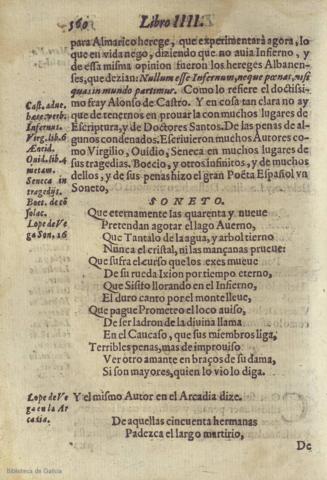 560 Libro IIII.
para Almarico herege, que experimentarà agora, lo
que en vida nego, diziendo que no auia Infierno, y
de essa misma opinion fueron los hereges Albanen-
ses, que dezian: Nullum esse Infernum, neque pœnas, nisi
quas in mundo partimur. Como lo refiere el doctissi-
mo fray Alonso de Castro. Y en cosa tan clara no ay
que detenernos en prouarla con muchos lugares de
Escriptura, y de Doctores Santos. De las penas de al-
gunos condenados, Escriuieron muchos Autores co-
mo Virgilio, Ouidio, Seneca en muchos lugares de
sus tragedias. Boecio, y otros infinitos, y de muchos
dellos, y de sus penas hizo el gran Poëta Español vn
Soneto,
Cast. adue.
hæres. verb.
Infernus.
Virg. lib. 6
Æneid.
Ouid. lib. 4
metam.
Seneca in
tragedijs.
Boet. de cō
solac.
Lope de Ve
ga Son. 16
SONETO.
Que eternamente las quarenta y nueue
Pretendan agotar el lago Auerno,
Que Tantalo de la agua, y arbol tierno
Nunca el cristal, ni las mançanas prueue:
Que sufra el curso que los exes mueue
De su rueda Ixion por tiempo eterno,
Que Sisifo llorando en el Infierno,
El duro canto por el monte lleue,
Que pague Prometo el loco auiso,
De ser ladron de la diuina llama
En el Caucaso, que sus miembros liga,
Terribles penas, mas de improuiso
Ver otro amante en braços de su dama,
Si son mayores, quien lo vio lo diga.
Lope de Ve
ga en la Ar
cadia.
Y el mismo Autor en el Arcadia dize.
De aquellas cincuenta hermanas
Padezca el largo martirio,
De
Biblioteca de Galicia